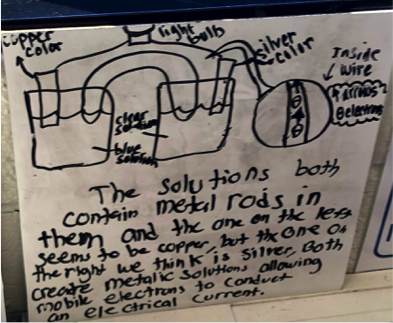 copper
color
light
bulb
silver
color
Inside
wire
arrows
electrons
clear
solution
blue
solution
The solutions both
contain metal rods in
them and the one on the left
seems to be copper, but the one on
the right we think is silver, Both
create metalic solutions allowing
mobile electrons to conduct
an electrical current.